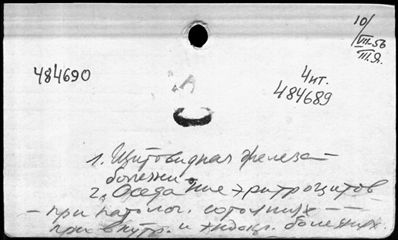 10/
VII-56
III.Я.
484690
4 ит.
484689
1. Щитовидная железа —
болезни
2. Оседание эритроцитов
— при патолог. состояниях —
при внутр. и эндокр. болезнях.